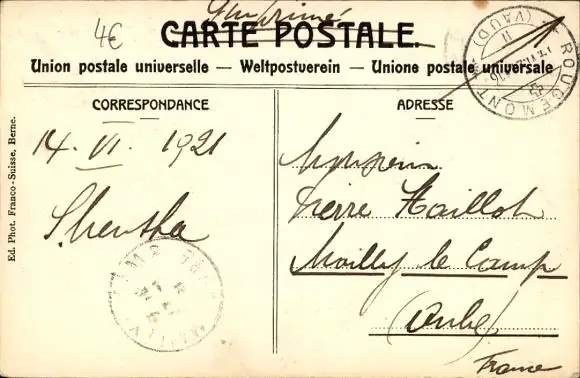 Imprimé
4€
CARTE POSTALE.
Union postale universelle — Weltpostverein — Unione postale universale
ROUGEMONT (VAUD)
CORRESPONDANCE
ADRESSE
Ed. Phot. Franco-Suisse, Berne.
14. VI. 1921
Monsieur
Pierre Maillot
Mailly le Camp
(Aube)
France